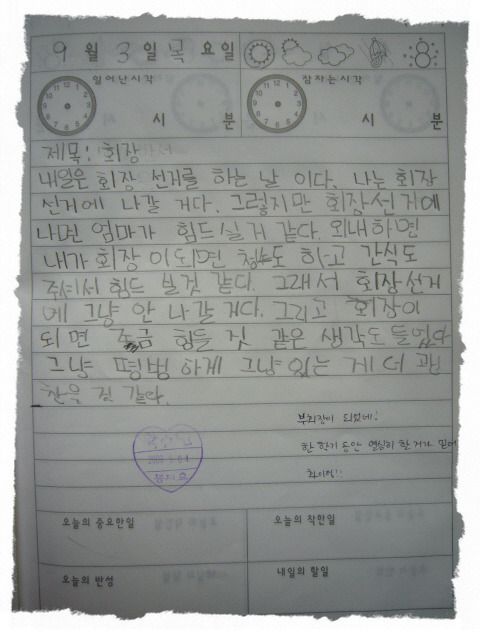 9 월 3 일 목 요일
일어난시각
잠자는시각
시 분
시 분
제목: 회장
내일은 회장 선거를 하는 날 이다. 나는 회장
선거에 나갈 거다. 그렇지만 회장선거에
나면 엄마가 힘드실거 같다. 왜내하면
내가 회장 이되면 청소도 하고 간식도
주셔서 힘드 실것 같다. 그래서 회장선거
에 그냥 안 나갈거다. 그리고 회장이
되면 조금 힘들 것 같은 생각도 들었다
그냥 평범 하게 그냥 있는 게 더 괜
찮을 것 같다.
부회장이 되었네!
한 학기 동안 열심히 할 거라 믿어
화이팅!!
오늘의 중요한일
오늘의 착한일
오늘의 반성
내일의 할일